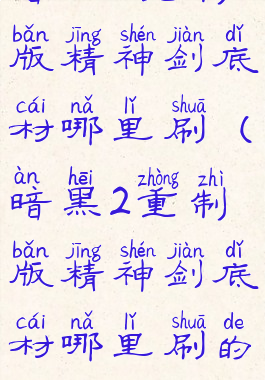 bǎn jīng shén jiàn dǐ
版精神剑底
cái nǎ lǐ shuā
材哪里刷（
àn hēi zhòng zhì
暗黑2重制
bǎn jīng shén jiàn dǐ
版精神剑底
cái nǎ lǐ shuā de
材哪里刷的